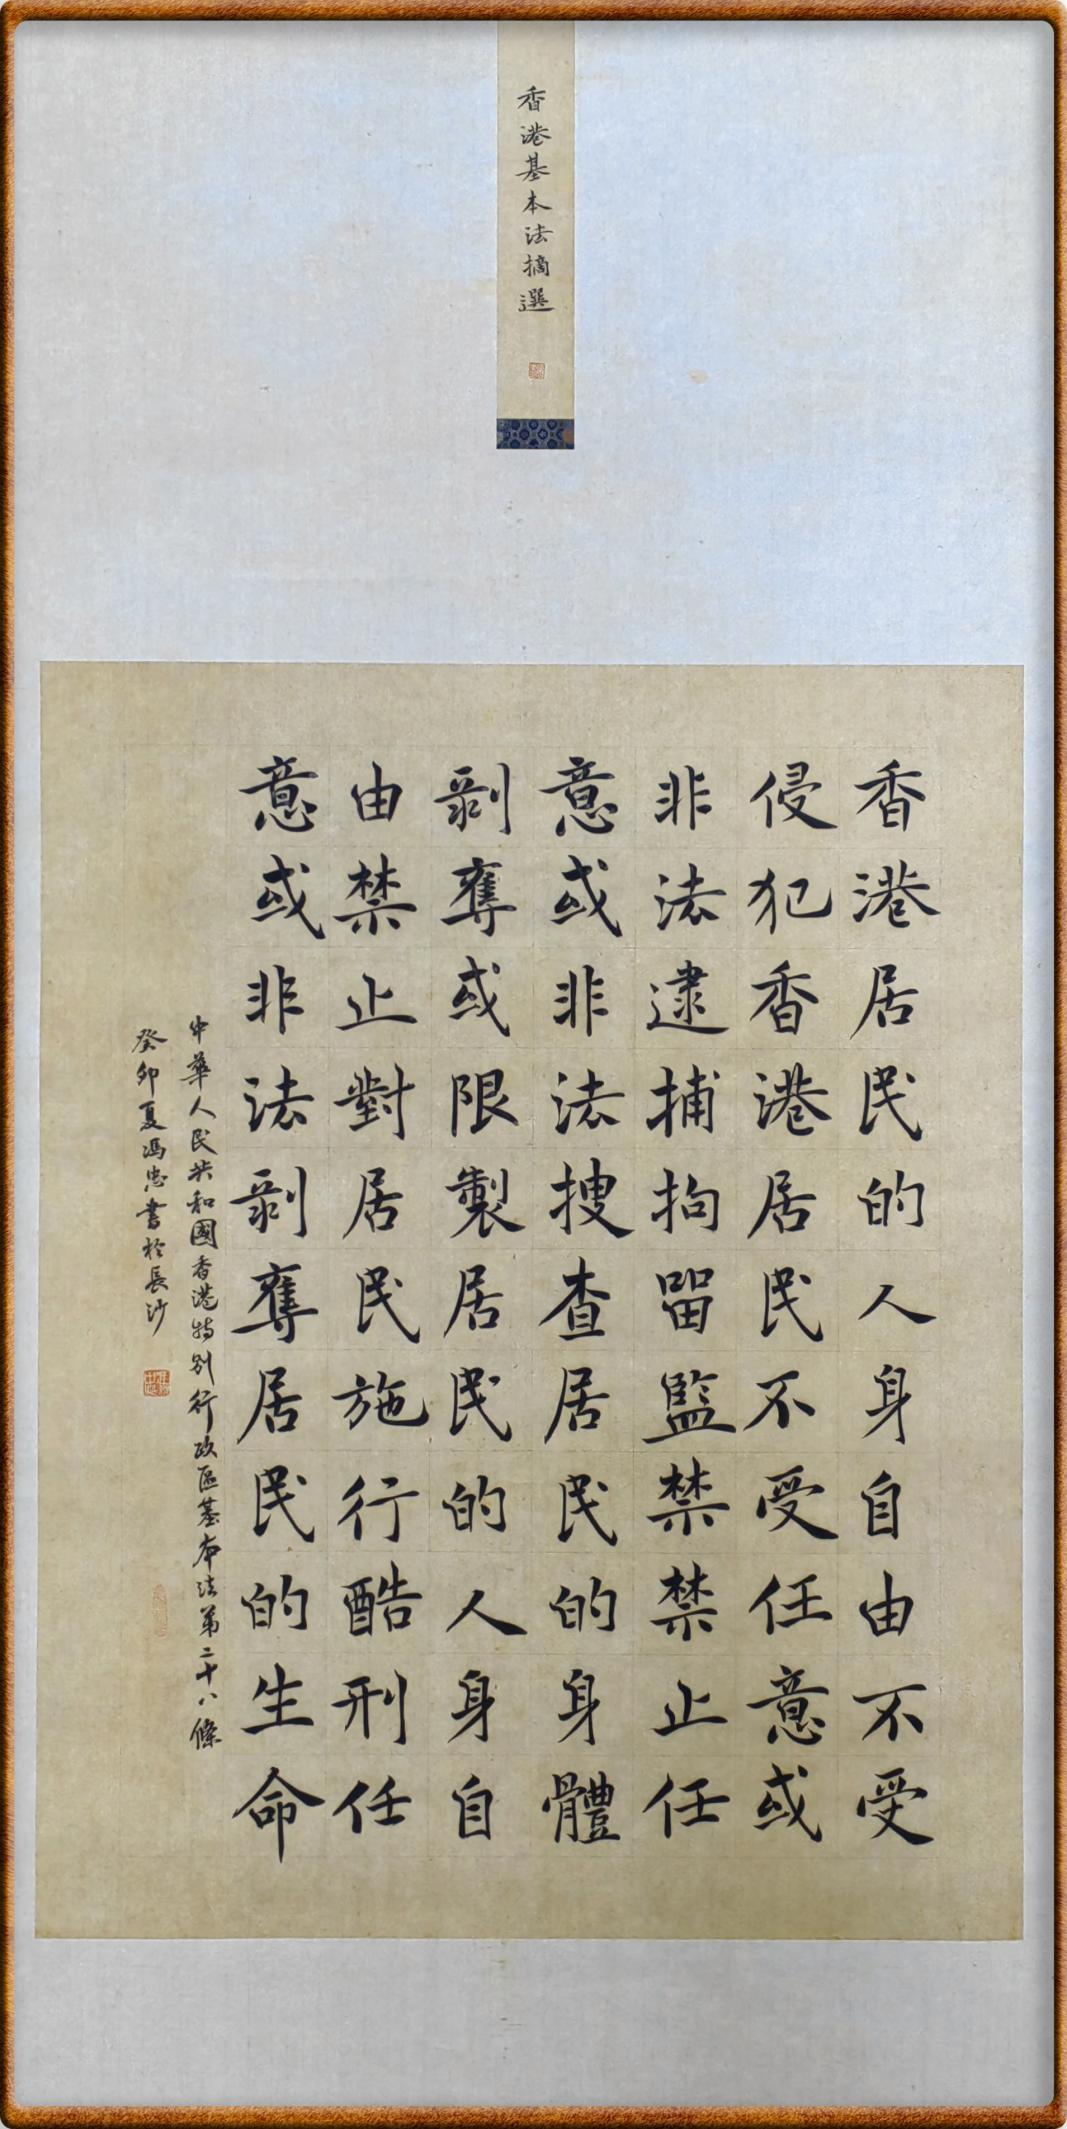 香港基本法摘選
香港居民的人身自由不受
侵犯香港居民不受任意或
非法逮捕拘留監禁禁止任
意或非法搜查居民的身體
剝奪或限製居民的人身自
由禁止對居民施行酷刑任
意或非法剝奪居民的生命
中華人民共和國香港特別行政區基本法第二十八條
癸卯夏馮忠書於長沙